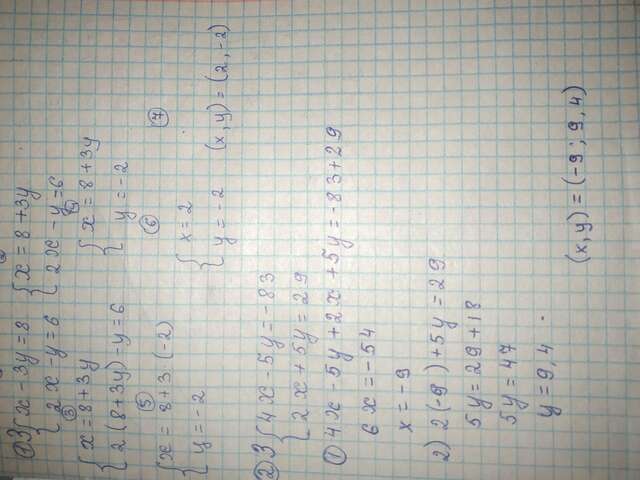 ① 3 { x - 3y = 8
{ 2x - y = 6
{ x = 8 + 3y
{ 2x - y = 6
③
{ x = 8 + 3y
{ 2(8 + 3y) - y = 6
{ x = 8 + 3y
{ y = -2
⑤
{ x = 8 + 3 (-2)
{ y = -2
⑥
{ x = 2
{ y = -2
⑦
(x, y) = (2, -2)
② 3 { 4x - 5y = -83
{ 2x + 5y = 29
① 4x - 5y + 2x + 5y = -83 + 29
6x = -54
x = -9
2) 2(-9) + 5y = 29
5y = 29 + 18
5y = 47
y = 9,4 .
(x, y) = (-9; 9,4)